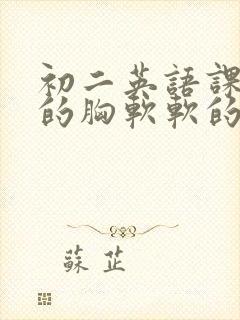 初二英語課
的胸軟軟的
蘇芷